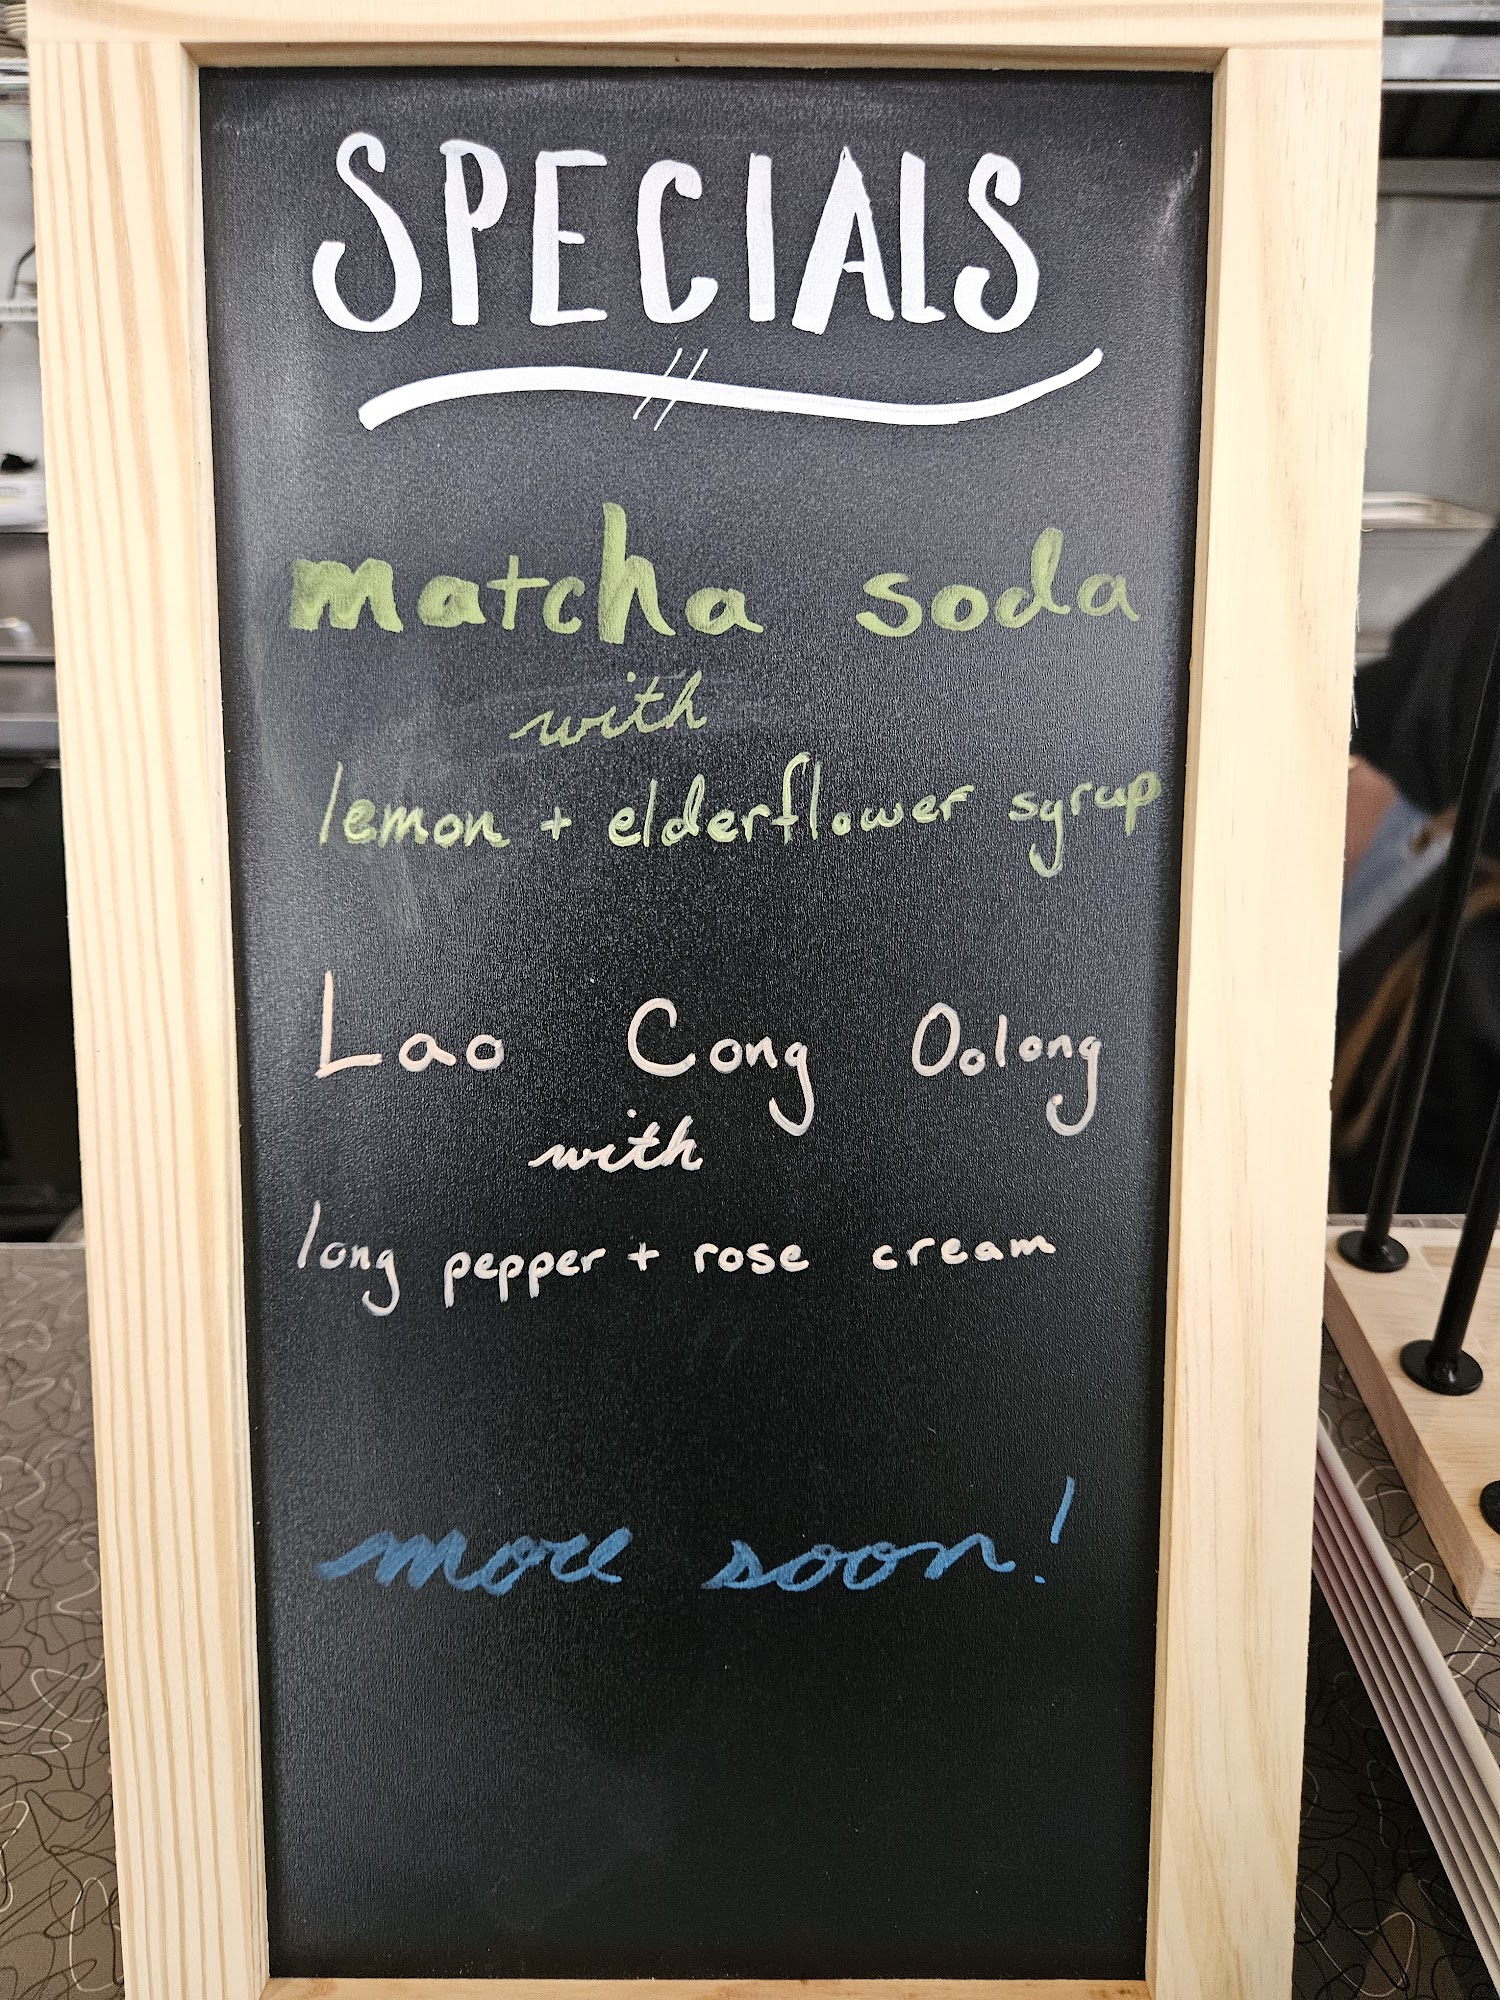 SPECIALS
matcha soda
with
lemon + elderflower syrup
Lao Cong Oolong
with
long pepper + rose cream
more soon!